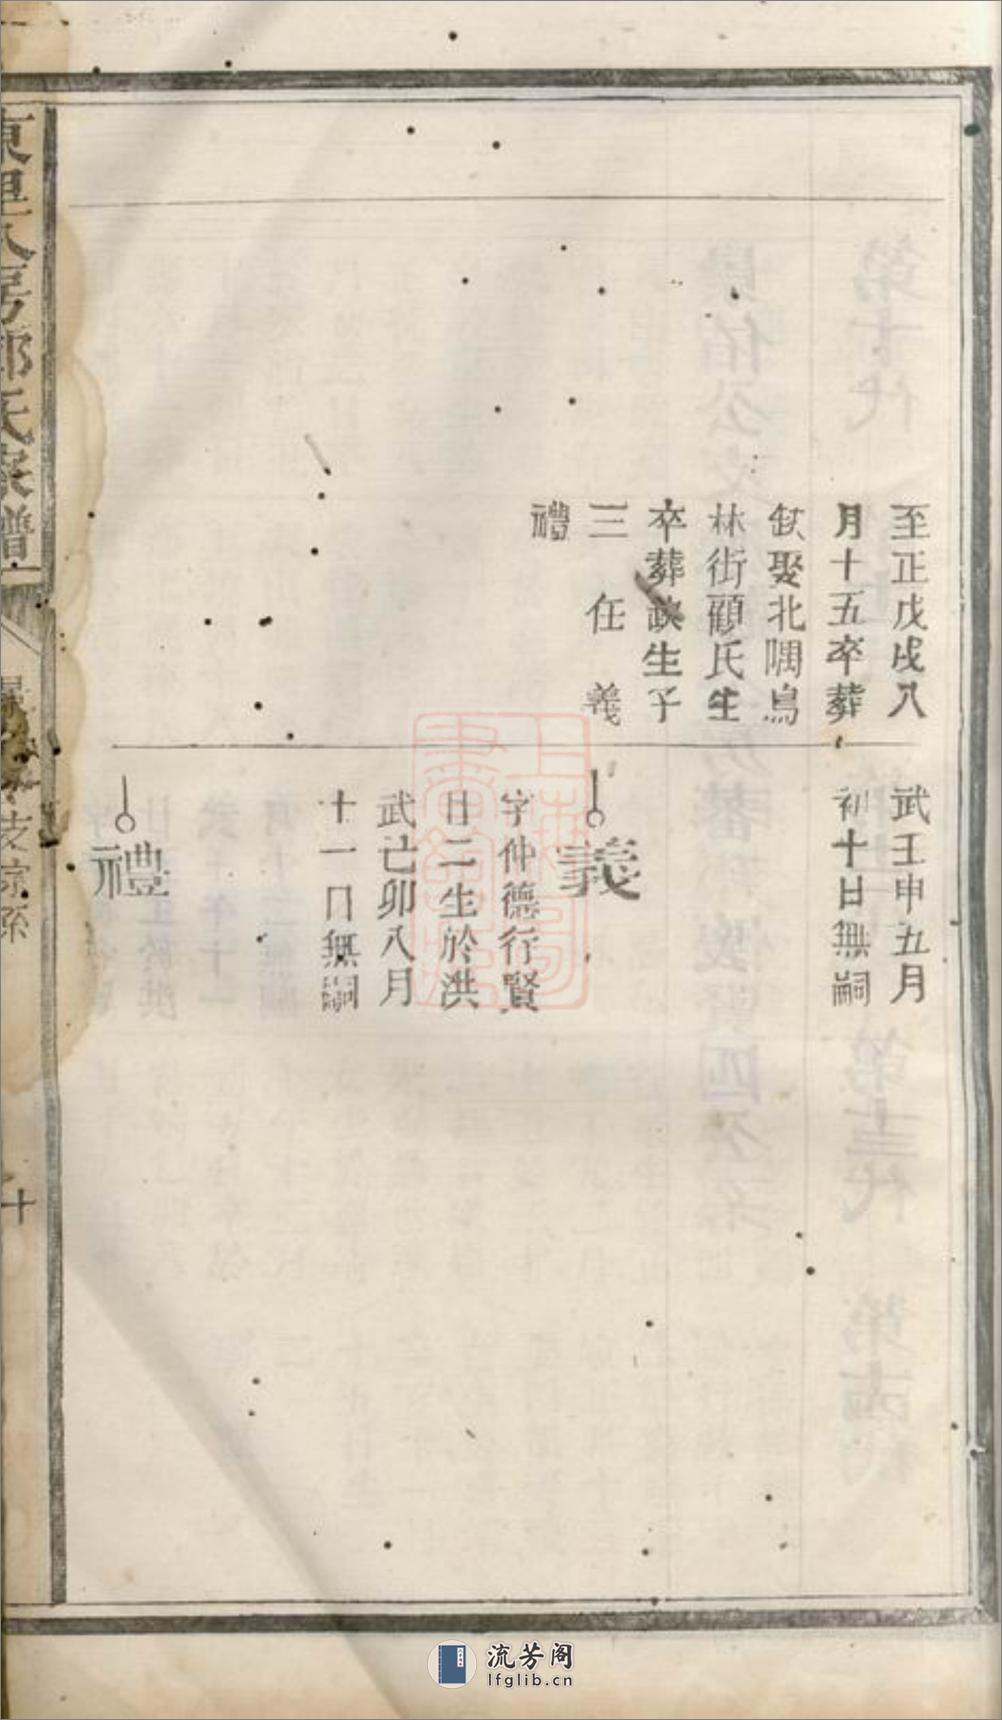 至正戊戌八
月十五卒葬
缺娶北隅鳥
林街顧氏生
卒葬缺生子
三任義
禮
武壬申五月
初十日無嗣
義
字仲德行賢
廿二生於洪
武己卯八月
十一日無嗣
禮
氏家譜
十
流芳阁
lfglib.cn